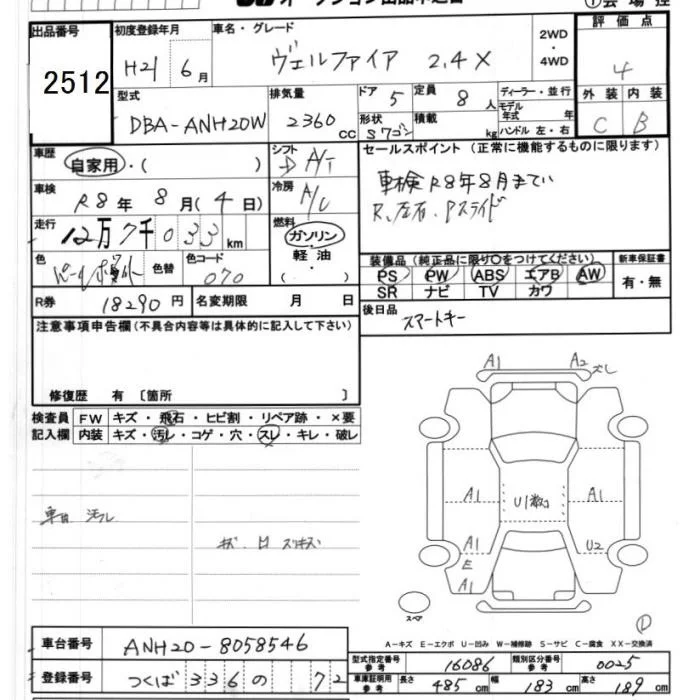 オークション出品申込書
① 会場控
出品番号 2512
初度登録年月 H21年 6月
車名・グレード ヴェルファイア 2.4X
2WD・4WD
評価点 4
型式 DBA-ANH20W
排気量 2360cc
ドア 5
定員 8人
形状 Sワゴン
積載 kg
ディーラー・並行
モデル年式 年式
ハンドル 左・右
外装 C
内装 B
車歴 自家用・( )
シフト A/T
セールスポイント (正常に機能するものに限ります)
車検 R8年 8月(4日)
冷房 A/C
車検R8年8月まで
R、左右、Pスライド
走行 12万7千033km
燃料 ガソリン・軽油・
装備品(純正品に限り○をつけてください)
新車保証書
PS PW ABS エアB AW
有・無
SR ナビ TV カワ
色 パール
色替
色コード 070
R券 18290円
名変期限 月 日
後日品 スマートキー
注意事項申告欄(不具合内容等は具体的に記入して下さい)
修復歴 有〔箇所 〕
検査員 FW キズ・飛石・ヒビ割・リペア跡・×要
記入欄 内装 キズ・汚レ・コゲ・穴・スレ・キレ・破レ
A1 A2 ズレ
車内 汚レ
A1 U1数ヶ A1
A1 U2
E
A1
スペア
A-キズ E-エクボ U-凹み W-補修跡 S-サビ C-腐食 XX-交換済
車台番号 ANH20-8058546
型式指定番号 参考 16086
類別区分番号 参考 0025
登録番号 つくば 336 の 72
車庫証明用 参考 長さ 485cm 幅 183cm 高さ 189cm